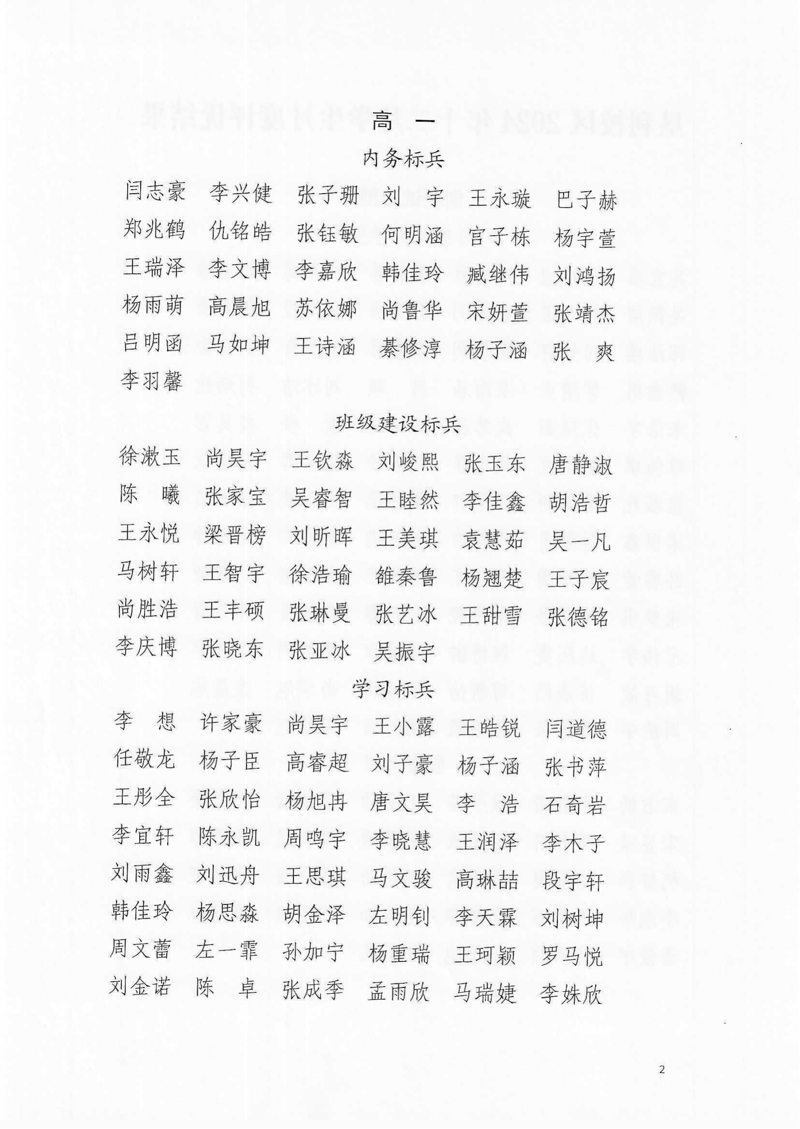 高 一
内务标兵
闫志豪 李兴健 张子珊 刘 宇 王永璇 巴子赫
郑兆鹤 仇铭皓 张钰敏 何明涵 官子栋 杨宇萱
王瑞泽 李文博 李嘉欣 韩佳玲 臧继伟 刘鸿扬
杨雨萌 高晨旭 苏依娜 尚鲁华 宋妍萱 张靖杰
吕明函 马如坤 王诗涵 綦修淳 杨子涵 张 爽
李羽馨
班级建设标兵
徐漱玉 尚昊宇 王钦淼 刘峻熙 张玉东 唐静淑
陈 曦 张家宝 吴睿智 王睦然 李佳鑫 胡浩哲
王永悦 梁晋榜 刘昕晖 王美琪 袁慧茹 吴一凡
马树轩 王智宇 徐浩瑜 雒秦鲁 杨翘楚 王子宸
尚胜浩 王丰硕 张琳曼 张艺冰 王甜雪 张德铭
李庆博 张晓东 张亚冰 吴振宇
学习标兵
李 想 许家豪 尚昊宇 王小露 王皓锐 闫道德
任敬龙 杨子臣 高睿超 刘子豪 杨子涵 张书萍
王彤全 张欣怡 杨旭冉 唐文昊 李 浩 石奇岩
李宜轩 陈永凯 周鸣宇 李晓慧 王润泽 李木子
刘雨鑫 刘迅舟 王思琪 马文骏 高琳喆 段学轩
韩佳玲 杨思淼 胡金泽 左明钊 李天霖 刘树坤
周文蕾 左一霏 孙加宁 杨重瑞 王珂颖 罗马悦
刘金诺 陈 卓 张成季 孟雨欣 马瑞婕 李姝欣
2